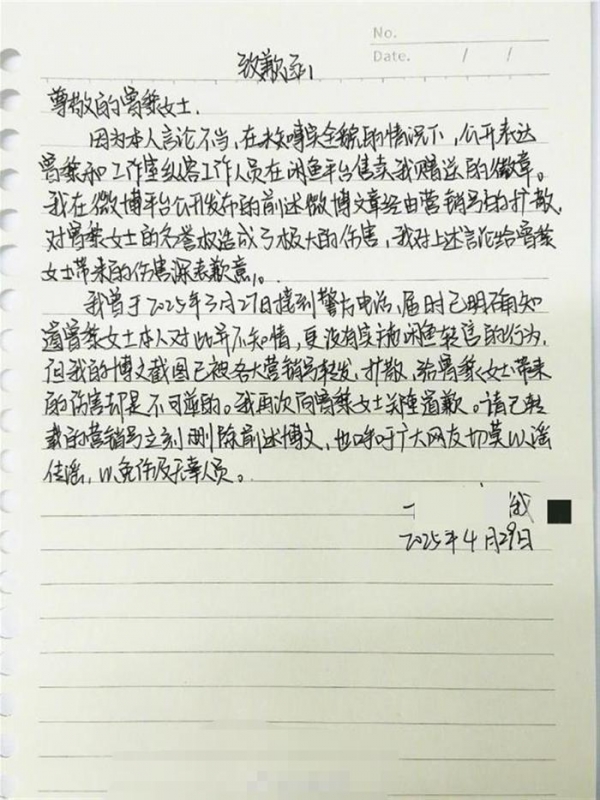 No.
Date. / /
致歉函
尊敬的曾黎女士.
因为本人言论不当,在未了解完全貌的情况下,公开表达
曾黎和工作室纵容工作人员在闲鱼平台售卖我赠送的徽章。
我在微博平台公开发布的前述微博文章经由营销号的扩散,
对曾黎女士的名誉权造成了极大的伤害,我对上述言论给曾黎
女士带来的伤害深表歉意。
我曾于2025年3月27日接到警方电话,届时已明确知
道曾黎女士本人对此并不知情,更没有实施闲鱼转售的行为,
但我的博文截图已被各大营销号转发、扩散,给曾黎女士带来
的伤害却是不可逆的。我再次向曾黎女士郑重道歉。请已转
载的营销号立刻删除前述博文,也呼吁广大网友切莫以谣
传谣,以免伤及无辜人员。
2025年4月29日